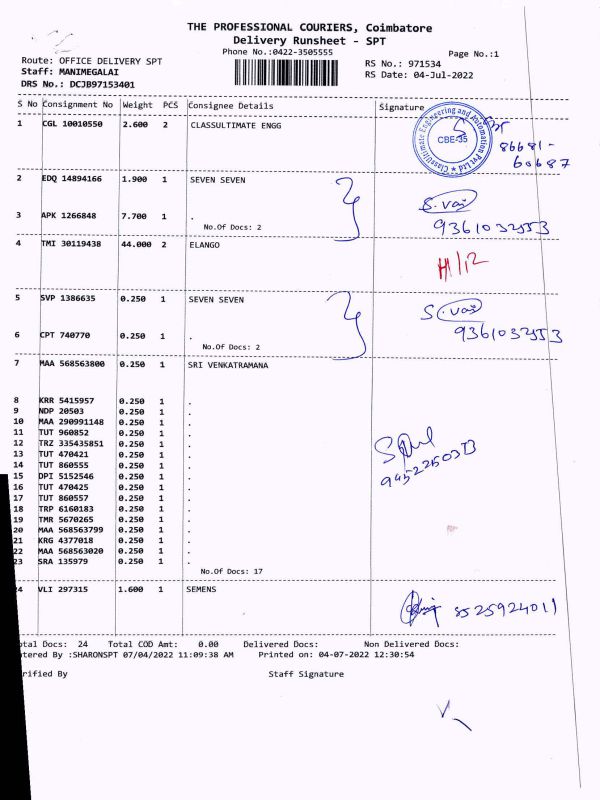 THE PROFESSIONAL COURIERS, Coimbatore
Delivery Runsheet - SPT
Phone No.:0422-3505555
Page No.:1
Route: OFFICE DELIVERY SPT
RS No.: 971534
Staff: MANIMEGALAI
RS Date: 04-Jul-2022
DRS No.: DCJB97153401
S No Consignment No Weight PCS Consignee Details Signature
1 CGL 10010550 2.600 2 CLASSULTIMATE ENGG
ClassUltimate Engineering and Automation Pvt Ltd ★
CBE-35
86681-
60687
2 EDQ 14894166 1.900 1 SEVEN SEVEN
3 APK 1266848 7.700 1 .
No.Of Docs: 2
9361032553
4 TMI 30119438 44.000 2 ELANGO
5 SVP 1386635 0.250 1 SEVEN SEVEN
9361032553
6 CPT 740770 0.250 1 .
No.Of Docs: 2
7 MAA 568563800 0.250 1 SRI VENKATRAMANA
8 KRR 5415957 0.250 1 .
9 NDP 20503 0.250 1 .
10 MAA 290991148 0.250 1 .
11 TUT 960852 0.250 1 .
12 TRZ 335435851 0.250 1 .
13 TUT 470421 0.250 1 .
14 TUT 860555 0.250 1 .
15 DPI 5152546 0.250 1 .
16 TUT 470425 0.250 1 .
17 TUT 860557 0.250 1 .
18 TRP 6160183 0.250 1 .
19 TMR 5670265 0.250 1 .
20 MAA 568563799 0.250 1 .
21 KRG 4377018 0.250 1 .
22 MAA 568563020 0.250 1 .
23 SRA 135979 0.250 1 .
No.Of Docs: 17
24 VLI 297315 1.600 1 SEMENS
8525924011
otal Docs: 24 Total COD Amt: 0.00 Delivered Docs: Non Delivered Docs:
tered By :SHARONSPT 07/04/2022 11:09:38 AM Printed on: 04-07-2022 12:30:54
rified By Staff Signature